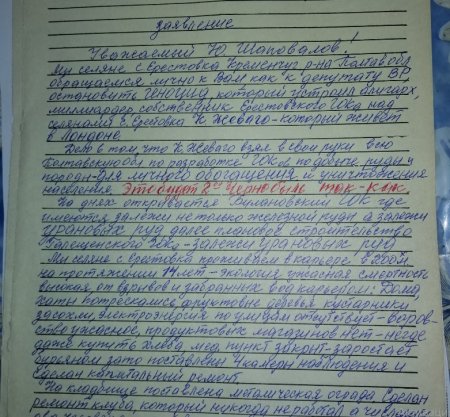 заявление
Уважаемый Ю. Шаповалов!
Мы селяне с Еристовка Кременчуг р-на Полтав обл
обращаемся лично к Вам как к депутату ВР
остановить геноцид который устроил олигарх,
миллиардер собственник Еристовского ГОКа над
селянами с Еристовка К Жеваго-который живёт
в Лондоне
Дело в том, что К Жеваго взял в свои руки всю
Полтавскую обл по разработке ГОКов по добыче руды и
пород-для личного обогащения и уничтожения
населения. Это будет 2й Чернобыль так-как
На днях открывается Билановский ГОК где
имеются залежи не только железной руды а залежи
урановых руд далее плановое строительство
Галещенского ГОКа-залежи урановых руд
Мы селяне с Еристовка проживаем в карьере в 200м
на протяжении 14 лет-экология ужасная смертность
высокая от взрывов и забранных вод карьером: Дома,
хаты потрескались, фруктовые деревья кустарники
засохли, электроэнергия по улицам отсутствует-воров-
ство ужасное, продуктовых магазинов нет-негде
даже купить хлеба мед пункт закрыт-заростает
бурьяном зато поставлены 4 камеры наблюдения и
сделан капитальный ремонт.
На кладбище поставлена металическая ограда Сделан
ремонт клуба, который никогда не работал а числится